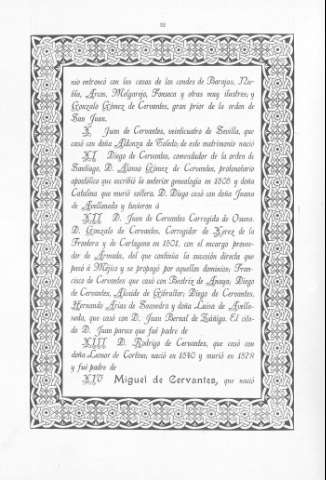 nio entroncó con las casas de los condes de Barajas, Nie-
bla, Arcos, Melgarejo, Fonseca y otras muy ilustres; y
Gonzalo Gómez de Cervantes, gran prior de la orden de
San Juan.
X Juan de Cervantes, veinticuatro de Sevilla, que
casó con doña Aldonza de Toledo, de este matrimonio nació
XI Diego de Cervantes, comendador de la orden de
Santiago, D. Alonso Gómez de Cervantes, protonotario
apostólico que escribió la anterior genealogía en 1506 y doña
Catalina que murió soltera. D. Diego casó con doña Juana
de Avellaneda y tuvieron á
XII D. Juan de Cervantes Corregidor de Osuna.
D. Gonzalo de Cervantes, Corregidor de Xerez de la
Frontera y de Cartagena en 1501, con el encargo provee-
dor de Armada, del que continúa la sucesión directa que
pasó á Méjico y se propagó por aquellos dominios; Fran-
cisco de Cervantes que casó con Beatriz de Anaya; Diego
de Cervantes, Alcaide de Gibraltar; Diego de Cervantes,
Hernando Arias de Saavedra y doña Luisa de Avella-
neda, que casó con D. Juan Bernal de Zúñiga. El cita-
do D. Juan parece que fué padre de
XIII D. Rodrigo de Cervantes, que casó con
doña Leonor de Cortinas, nació en 1540 y murió en
y fué padre de
XIV Miguel de Cervantes, que nació